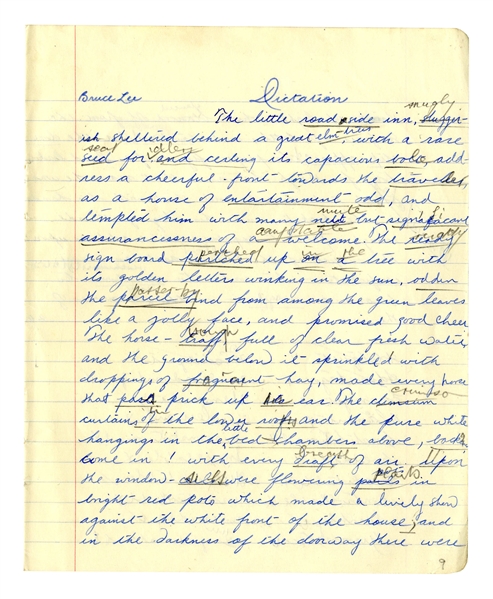 Bruce Lee Dictation
snugly
The little road side inn, slugger-
ish sheltered behind a great elm-tree, with a rare
seat idlers
seed for and cerling its capacious bole, add
ress a cheerful-front towards the traveller,
as a house of entertainment odd, and
mute
tempted him with many but significant
comfortable
assurancesness of a welcome. The
perched the
sign board up on a tree with
its golden letters winking in the sun, oddun
passer-by
the and from among the green leaves
like a jolly face, and promised good cheer
trough
The horse- full of clear fresh water,
and the ground below it sprinkled with
droppings of fragrant hay, made every horse
crimson
that prick up ear. The
curtains of the lower rooms and the pure white
little
hangings in the bed chambers above, beck
breath
come in! with every of air. Upon
plants
the window- were flowering in
bright red pots which made a lively show
against the white front of the house, and
in the darkness of the doorway there were
9